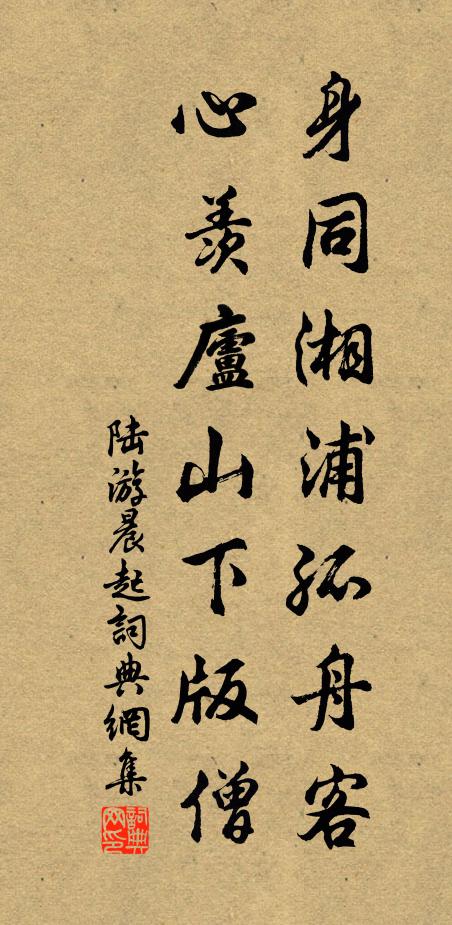 身同湘浦孤舟客
心羨廬山下版僧
陆游晨起詞典網集
詞典网印